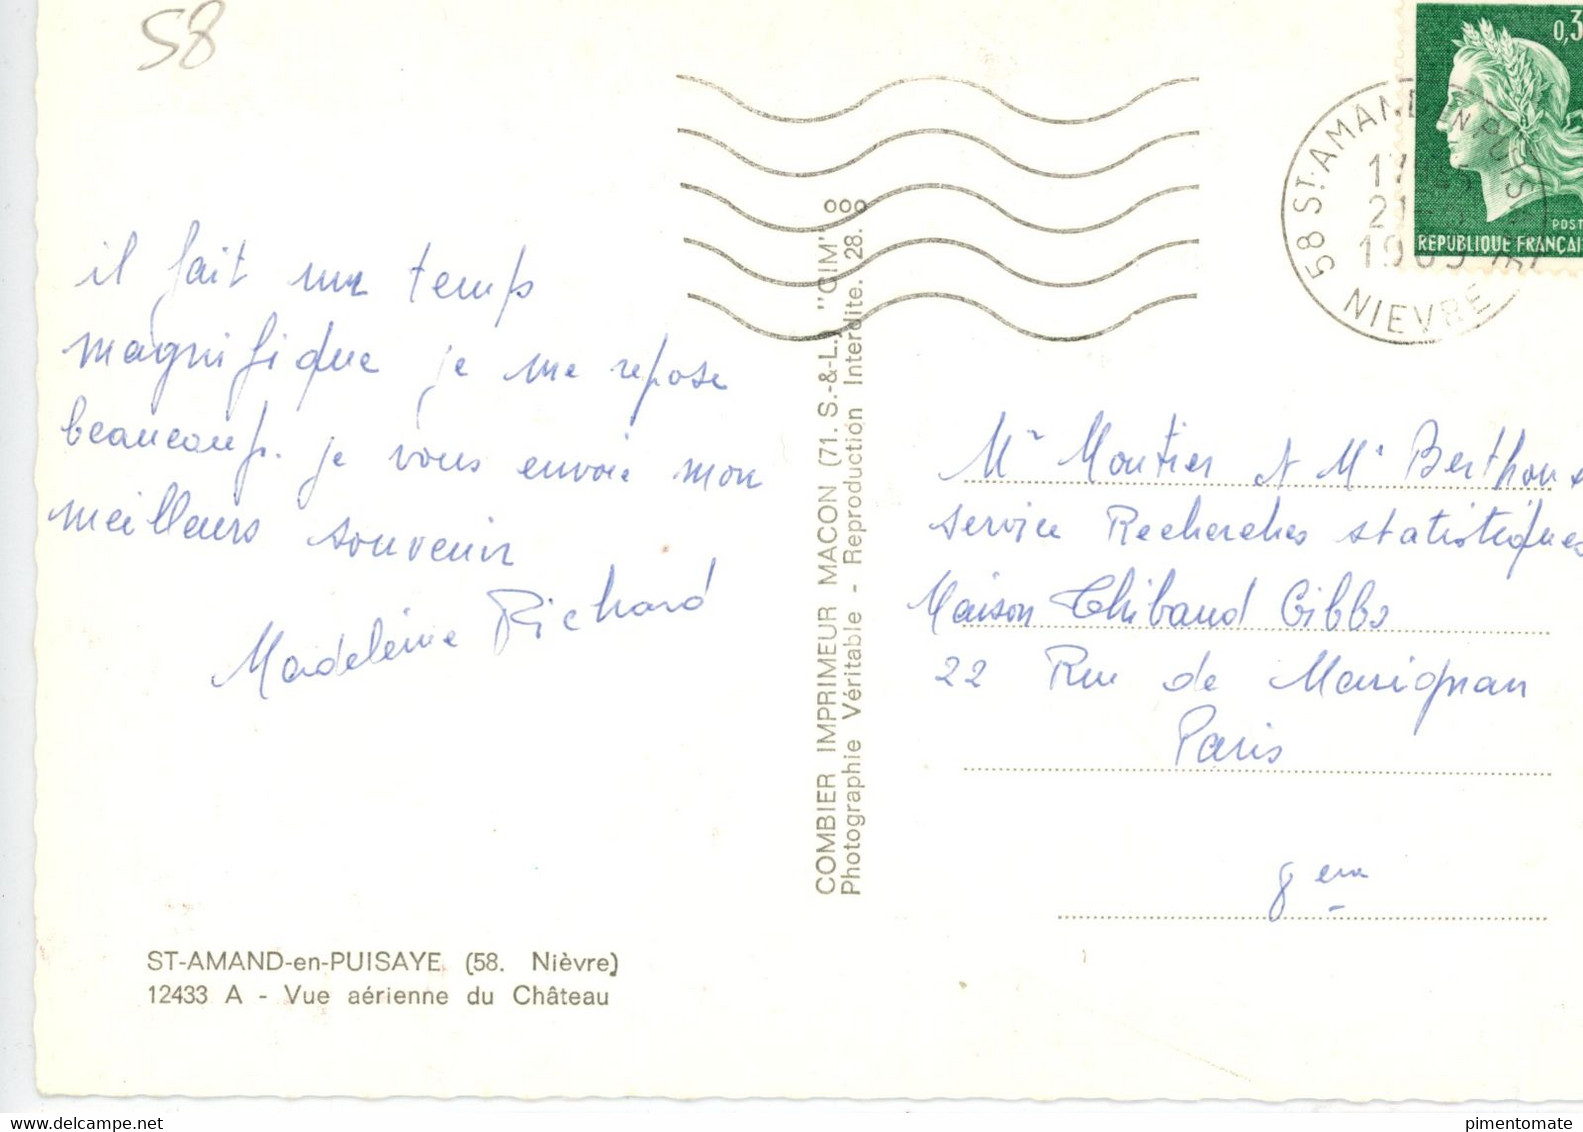 58
il fait un temps
magnifique je me repose
beaucoup. je vous envoie mon
meilleurs souvenir
Madeleine Richard
ST-AMAND-en-PUISAYE (58. Nièvre)
12433 A - Vue aérienne du Château
COMBIER IMPRIMEUR MACON (71. S.-&-L.) "CIM"
Photographie Véritable - Reproduction Interdite. 28.
0,3
POST
REPUBLIQUE FRANÇAIS
58 ST-AMAND EN PUIS
17
21
1969
NIEVRE
Mr Moutier et Mr Berthou
service Recherches statistiques
Maison Thibaud Gibbs
22 Rue de Marignan
Paris
8eme
www.delcampe.net
pimentomate